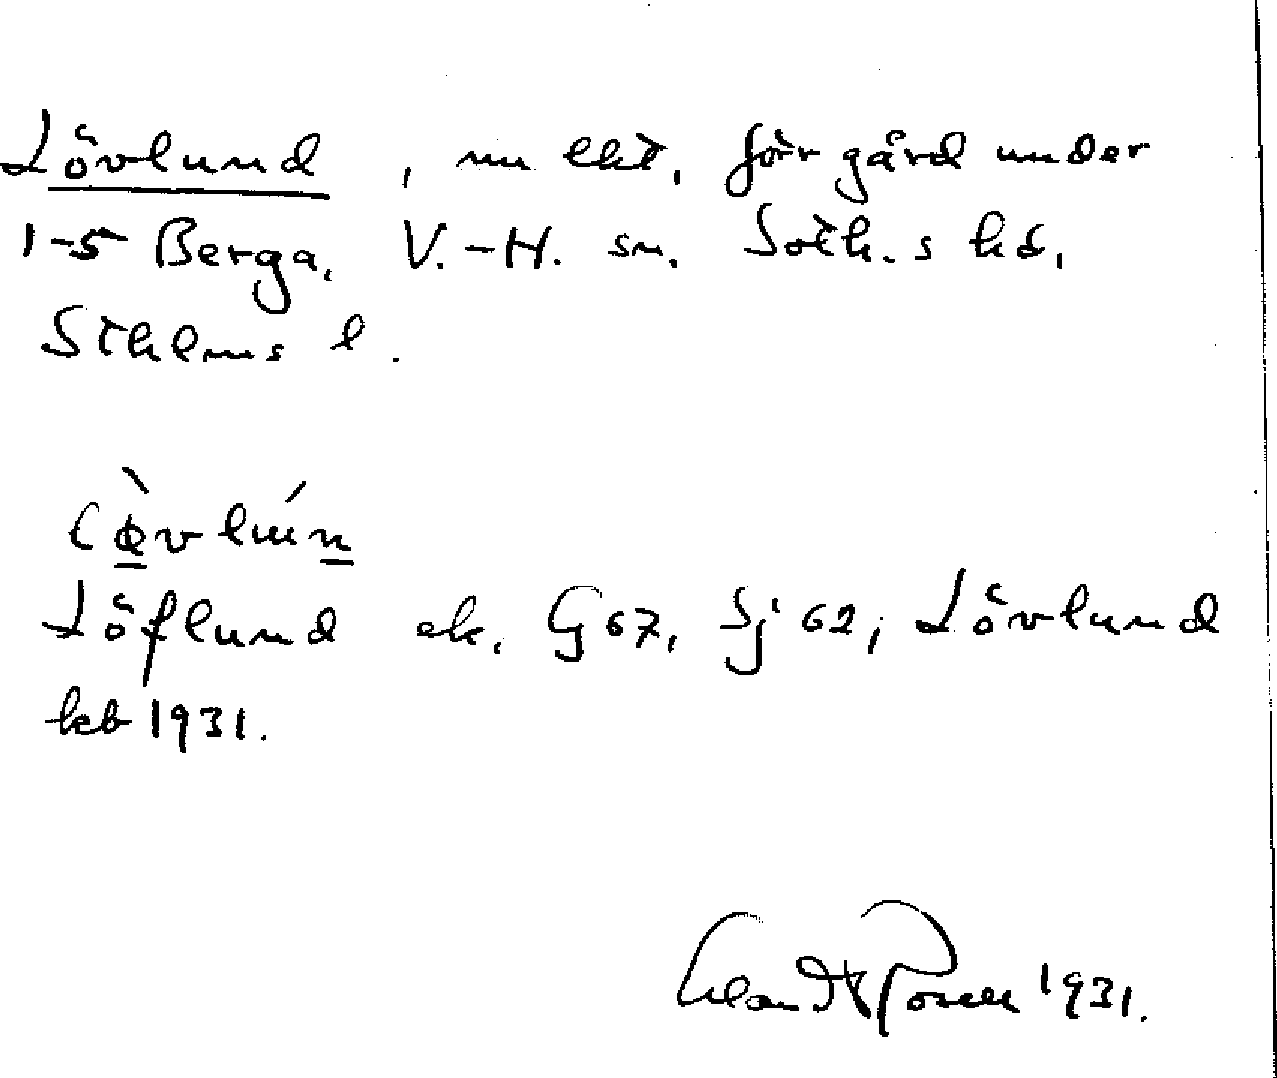 Lövlund, nu lht, förr gård under
1-5 Berga, V.-H. sn. Soth.s hd,
Sthlms l.
Löflund ek. G 67, Sj 62; Lövlund
kb 1931.
1931.